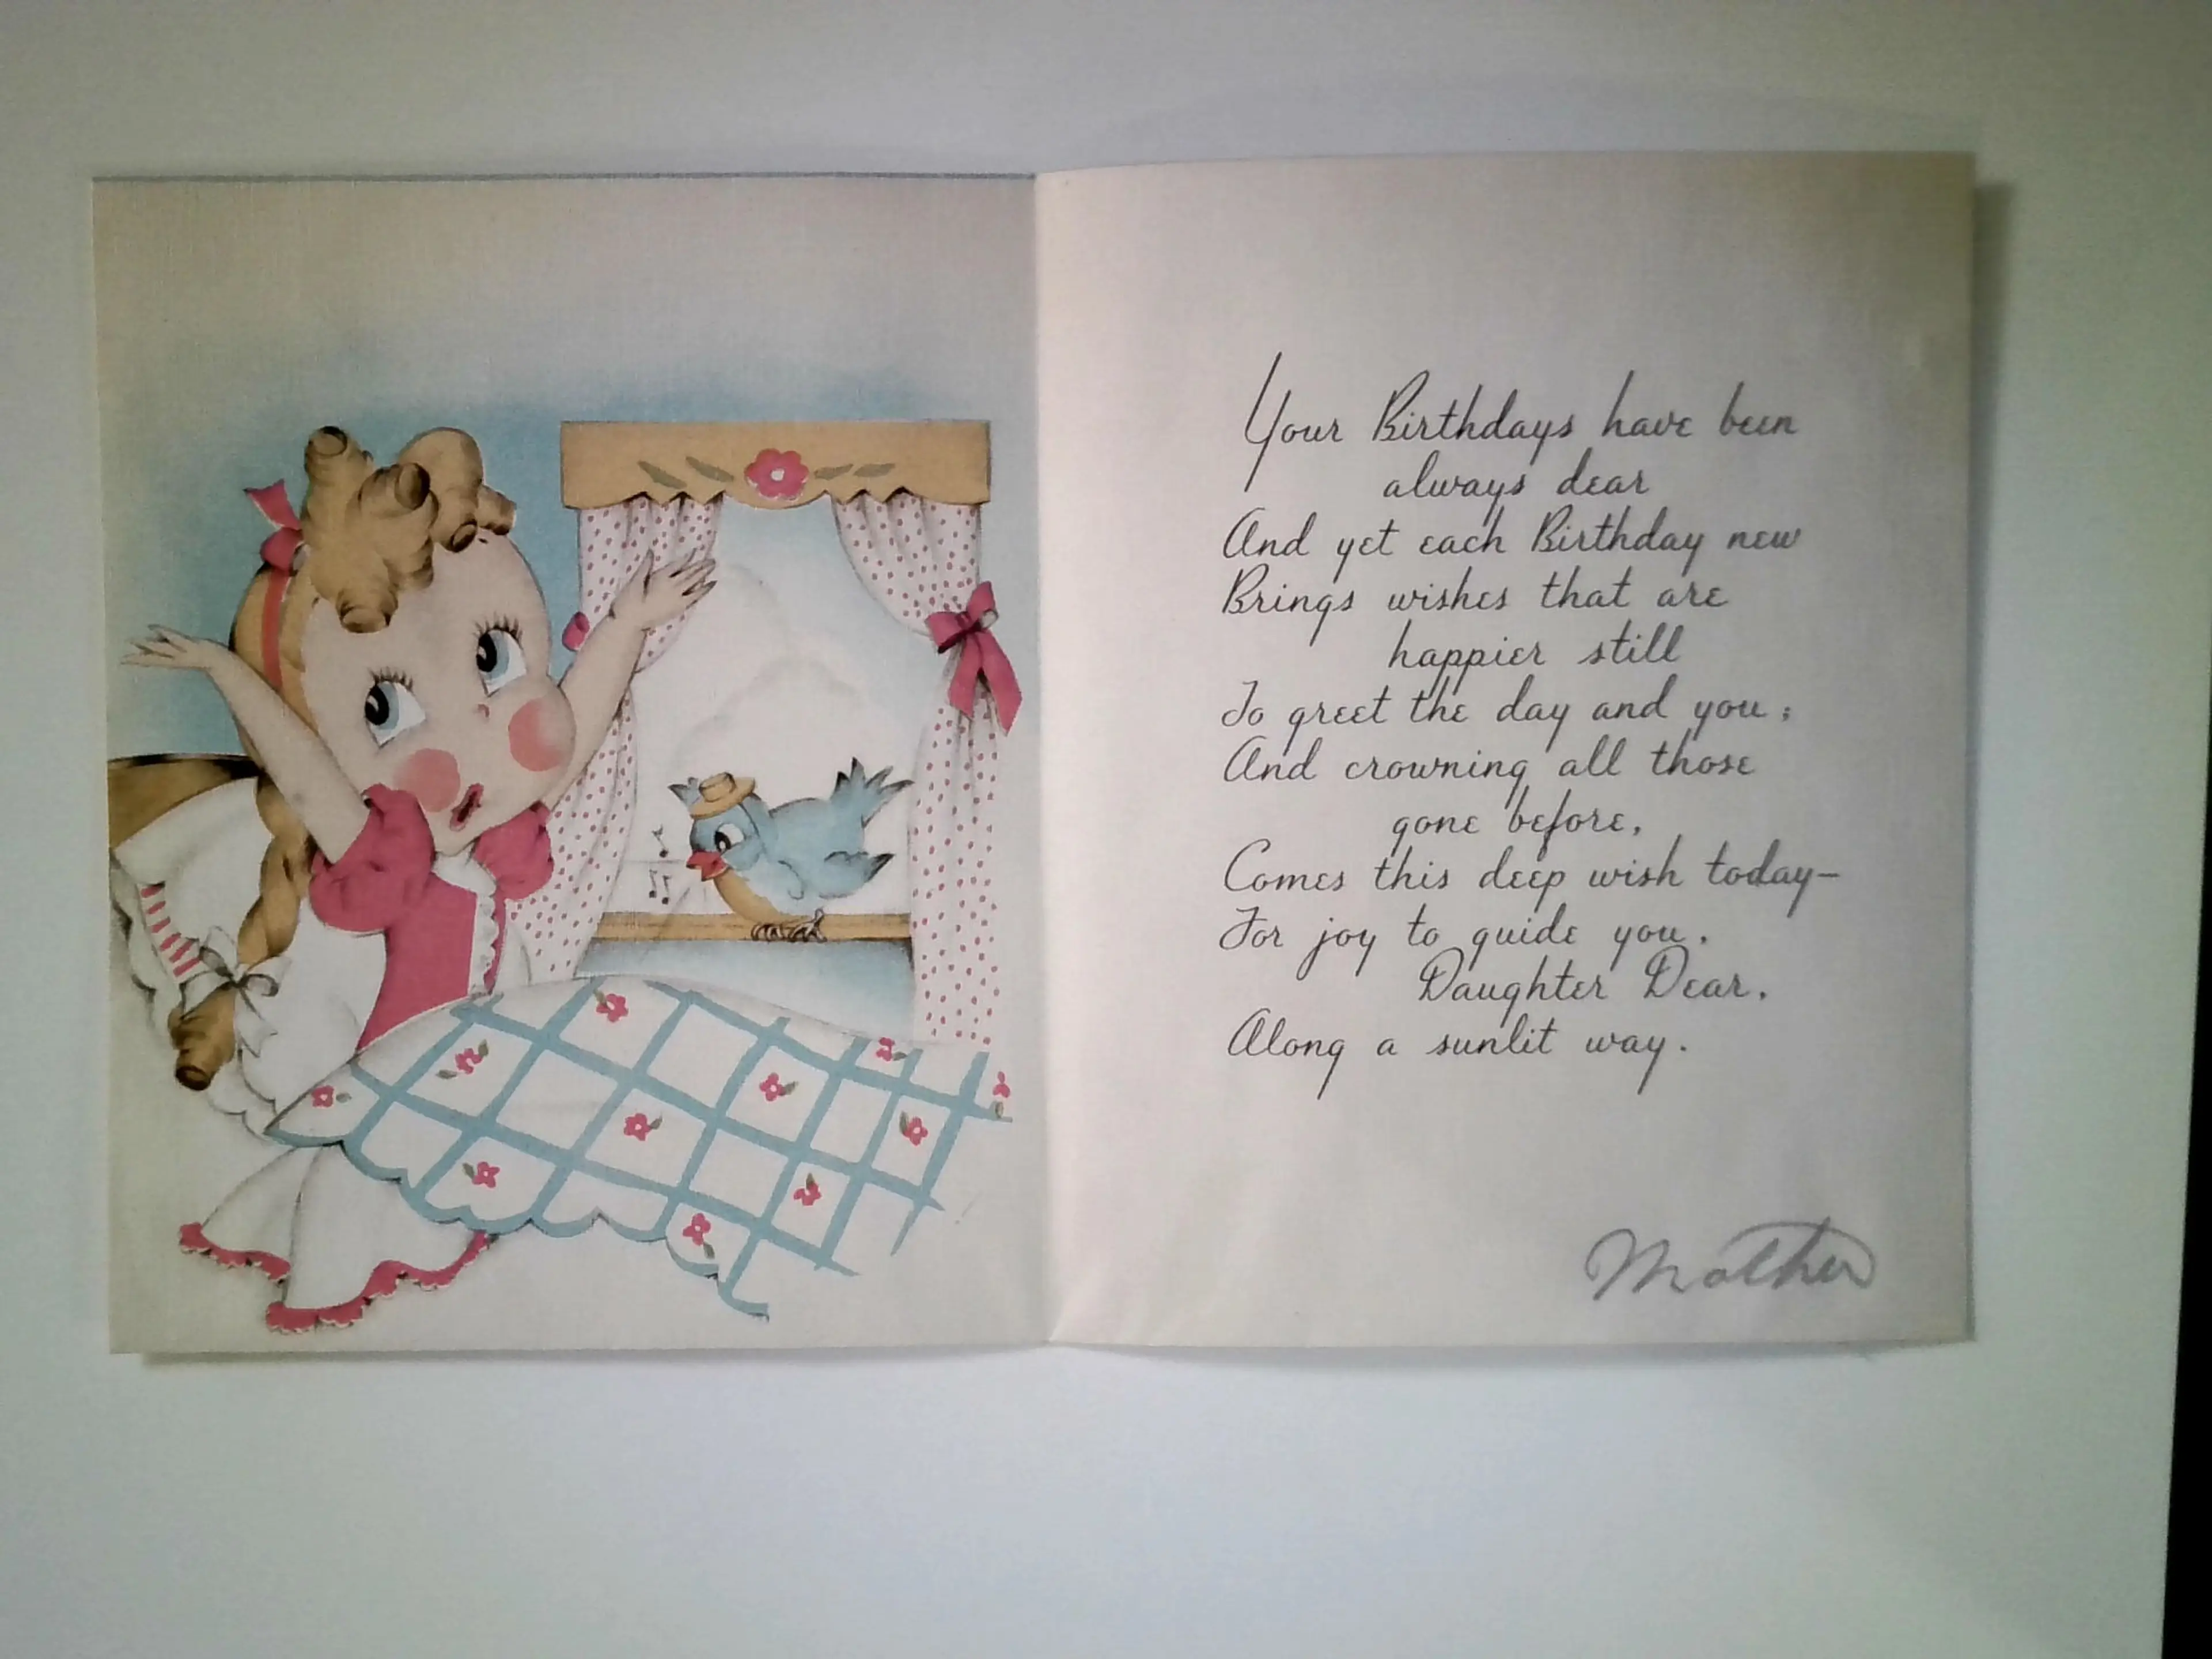 Your Birthdays have been
always dear
And yet each Birthday new
Brings wishes that are
happier still
To greet the day and you;
And crowning all those
gone before,
Comes this deep wish today—
For joy to guide you,
Daughter Dear,
Along a sunlit way.
Mother